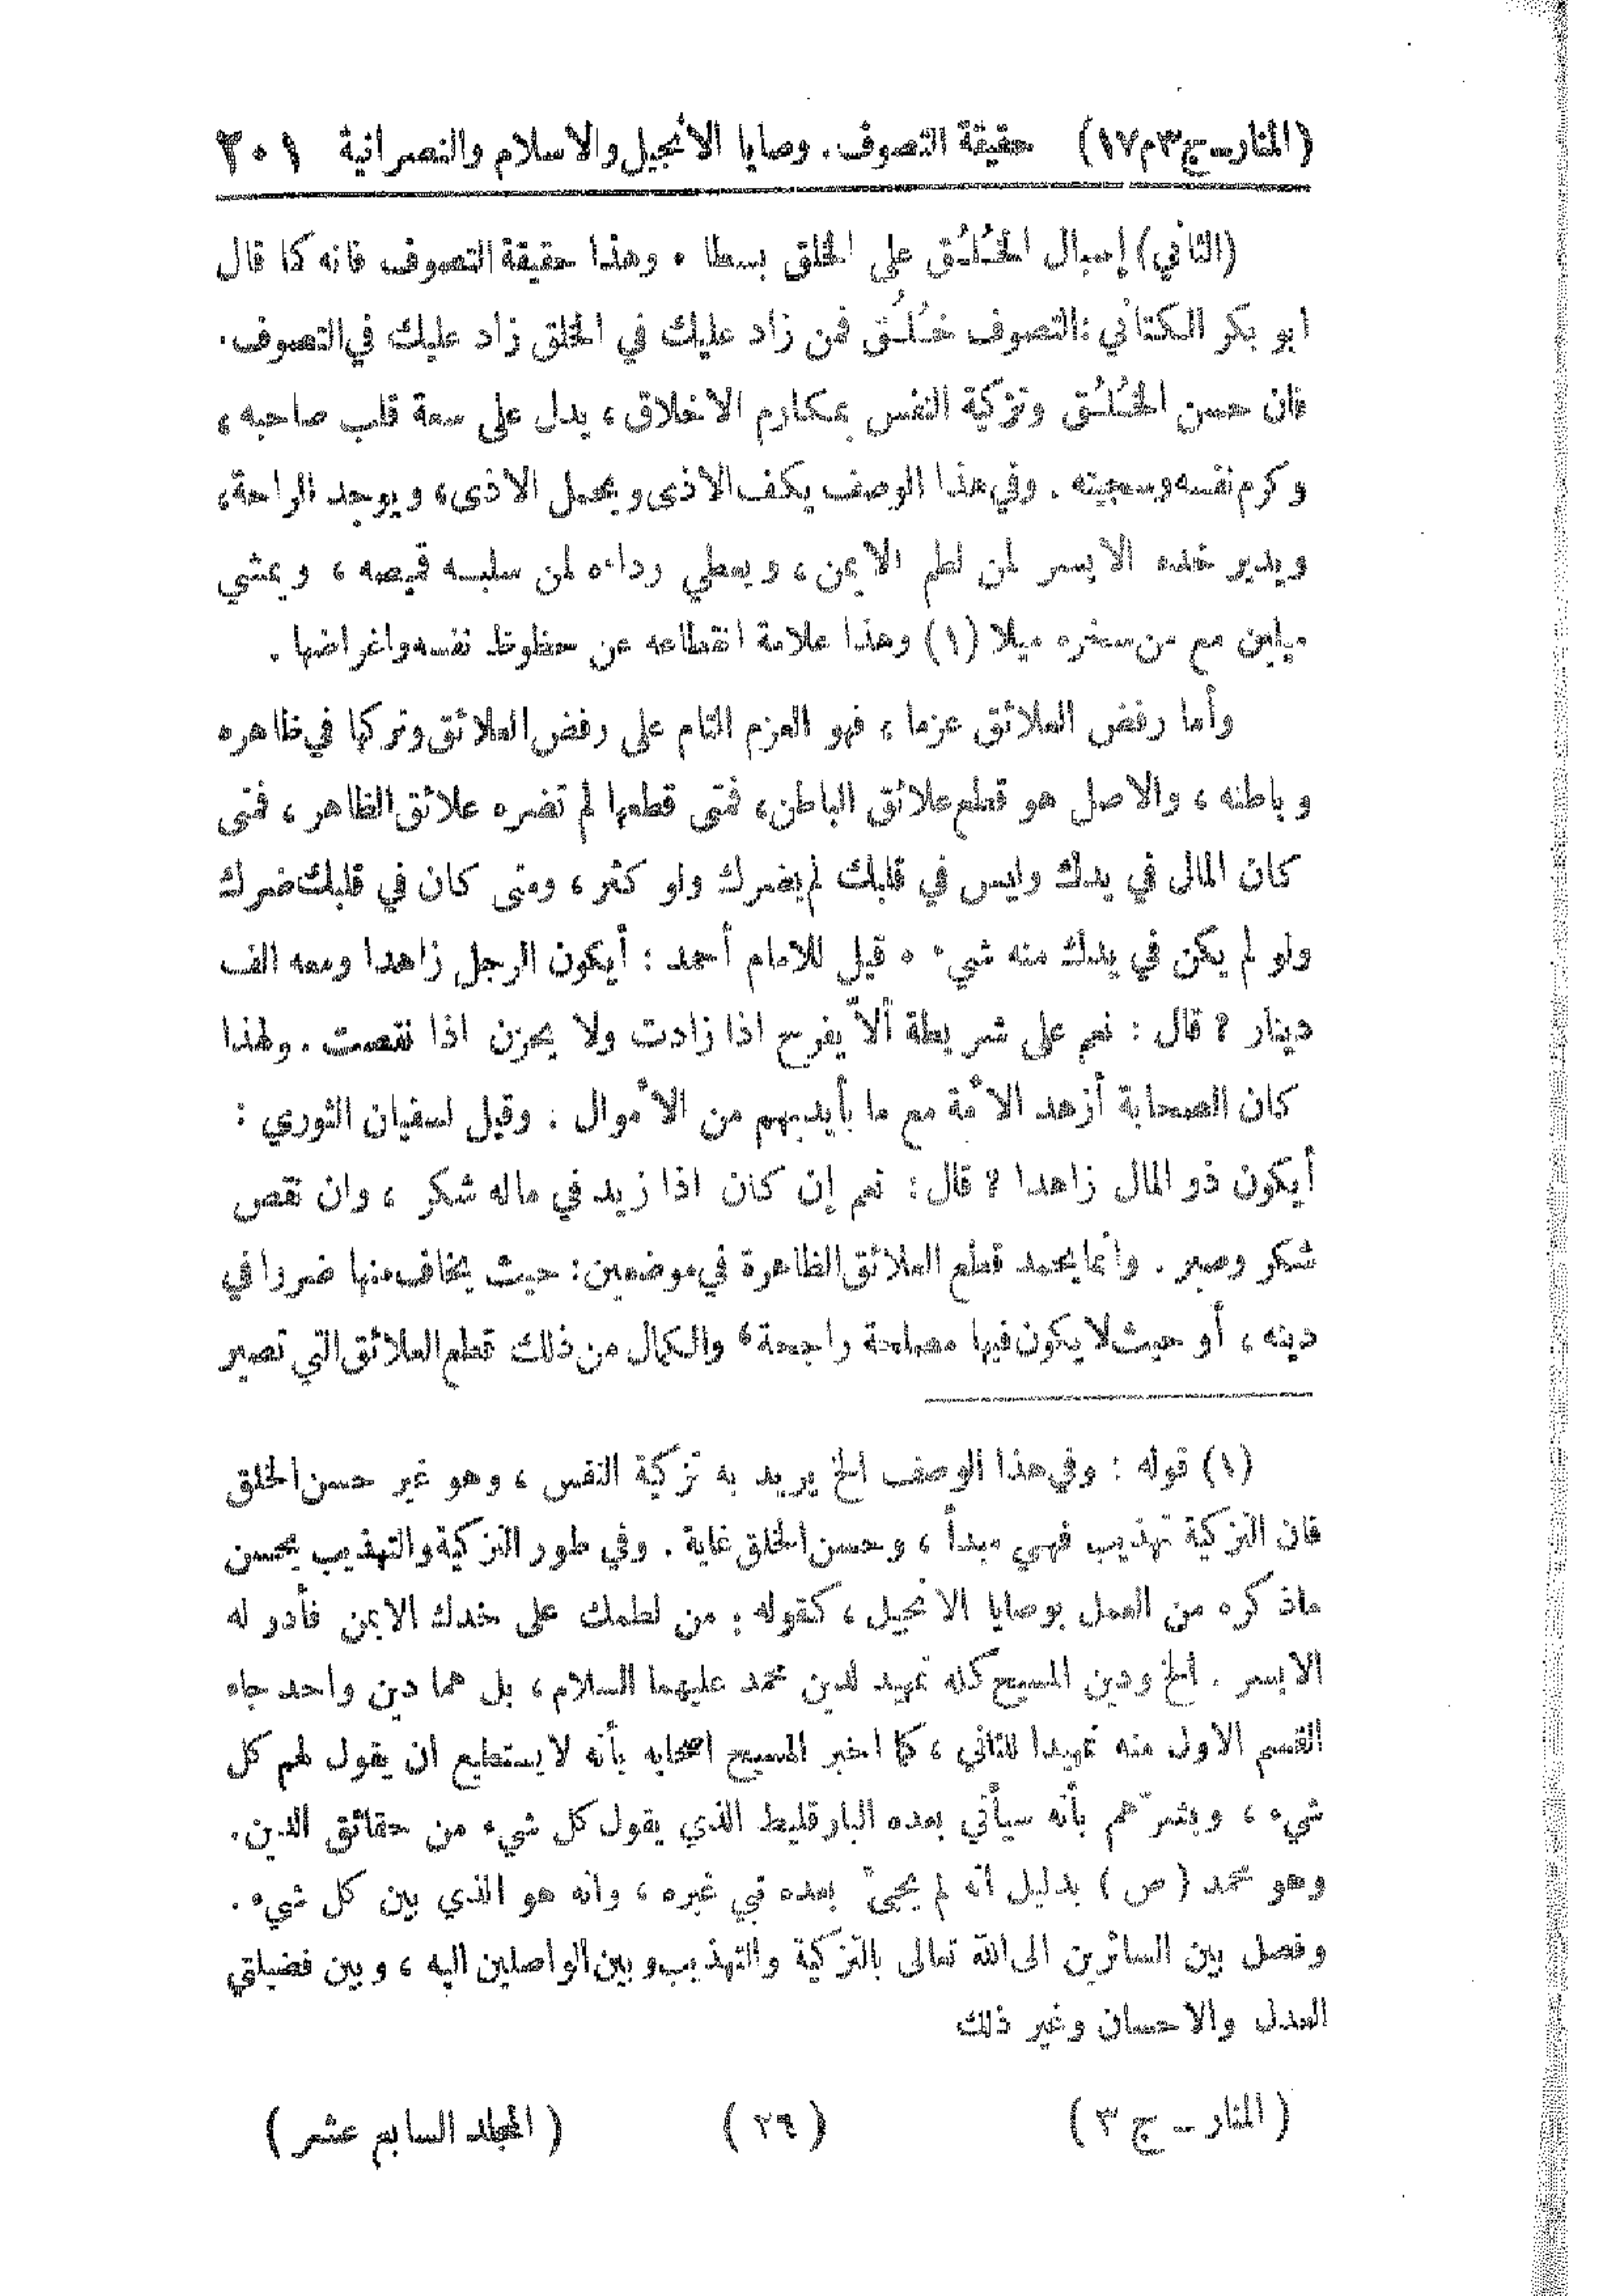 (المنار_ج٣م١٧) حقيقة التصوف. وصايا الانجيل والاسلام والنصرانية ٢٠١
(الثاني) إسبال الخُلُق على الخلق بسطا . وهذا حقيقة التصوف فانه كما قال
ابو بكر الكتاني: التصوف خُلُق فمن زاد عليك في الخلق زاد عليك في التصوف.
فان حسن الخُلُق وتزكية النفس بمكارم الاخلاق، يدل على سعة قلب صاحبه ،
وكرم نفسه وسجيته . وفي هذا الوصف يكف الاذى ويحمل الاذى، ويوجد الراحة،
ويدير خده الايسر لمن لطم الايمن ، ويعطي رداءه لمن سلبه قميصه ، ويمشي
ميلين مع من سخره ميلا (١) وهذا علامة انقطاعه عن حظوظ نفسه واغراضها .
وأما رفض العلائق عزما ، فهو العزم التام على رفض العلائق وتركها في ظاهره
وباطنه ، والاصل هو قطع علائق الباطن، فمتى قطعها لم تضره علائق الظاهر ، فمتى
كان المال في يدك وليس في قلبك لم يضرك ولو كثر ، ومتى كان في قلبك ضرك
ولو لم يكن في يدك منه شيء . قيل للامام أحمد : أيكون الرجل زاهدا ومعه الف
دينار ؟ قال : نعم على شريطة ألاّ يفرح اذا زادت ولا يحزن اذا نقصت . ولهذا
كان الصحابة أزهد الأمة مع ما بأيديهم من الأموال . وقيل لسفيان الثوري :
أيكون ذو المال زاهدا ؟ قال: نعم إن كان اذا زيد في ماله شكر ، وان نقص
شكر وصبر . وانما يحمد قطع العلائق الظاهرة في موضعين: حيث يخاف منها ضررا في
دينه ، أو حيث لا يكون فيها مصلحة راجحة، والكمال من ذلك قطع العلائق التي تصير
(١) قوله : وفي هذا الوصف الخ يريد به تزكية النفس ، وهو غير حسن الخلق
فان التزكية تهذيب فهي مبدأ ، وحسن الخلق غاية . وفي طور التزكية والتهذيب يحسن
ماذكره من العمل بوصايا الانجيل ، كقوله : من لطمك على خدك الايمن فأدر له
الايسر . الخ ودين المسيح كله تمهيد لدين محمد عليهما السلام ، بل هما دين واحد جاء
القسم الاول منه تمهيدا للثاني ، كما اخبر المسيح اصحابه بأنه لا يستطيع ان يقول لهم كل
شيء ، وبشرّهم بأنه سيأتي بعده البارقليط الذي يقول كل شيء من حقائق الدين.
وهو محمد (ص) بدليل انه لم يجئ بعده نبي غيره ، وانه هو الذي بين كل شيء .
وفصل بين السائرين الى الله تعالى بالتزكية والتهذيب وبين الواصلين اليه ، وبين فضيلتي
العدل والاحسان وغير ذلك
(المنار _ ج ٣) (٢٦) (المجلد السابع عشر)